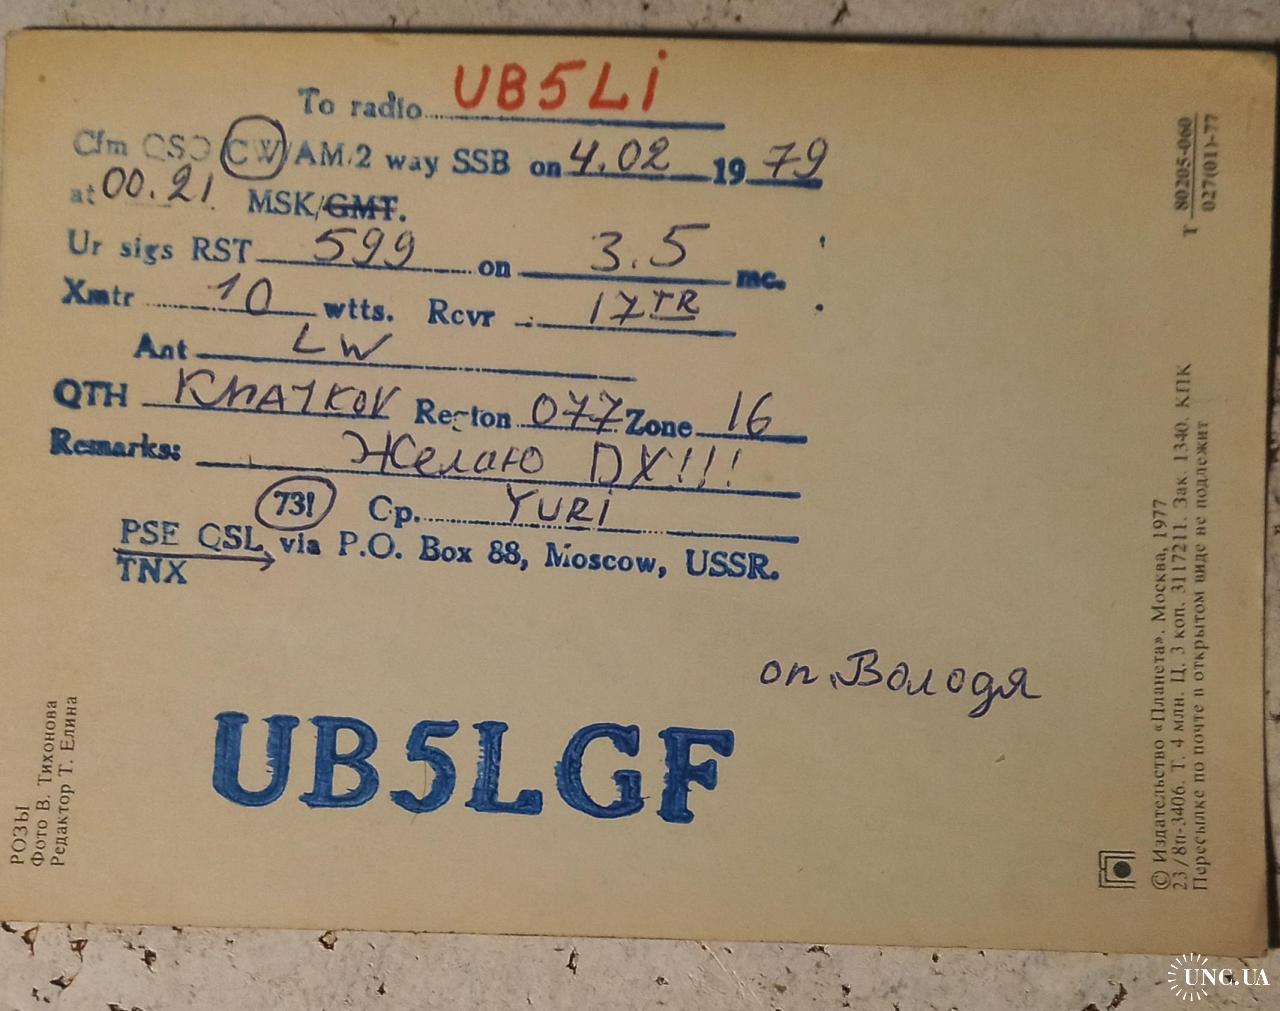 To radio UB5Li
Cfm QSO CW/AM/2 way SSB on 4.02 1979
at 00.21 MSK/GMT.
Ur sigs RST 599 on 3.5 mc.
Xmtr 10 wtts. Rcvr 17TR
Ant LW
QTH KHARKOV Region 077 Zone 16
Remarks: Желаю DX!!!
73! Op. YURI
PSE QSL via P.O. Box 88, Moscow, USSR.
TNX
оп. Володя
UB5LGF
РОЗЫ
Фото В. Тихонова
Редактор Т. Елина
Т 80205-060
027(01)-77
© Издательство «Планета». Москва, 1977
23/8п-3406. Т. 4 млн. Ц. 3 коп. 3117211. Зак. 1340. КПК
Пересылке по почте в открытом виде не подлежит
UNC.UA